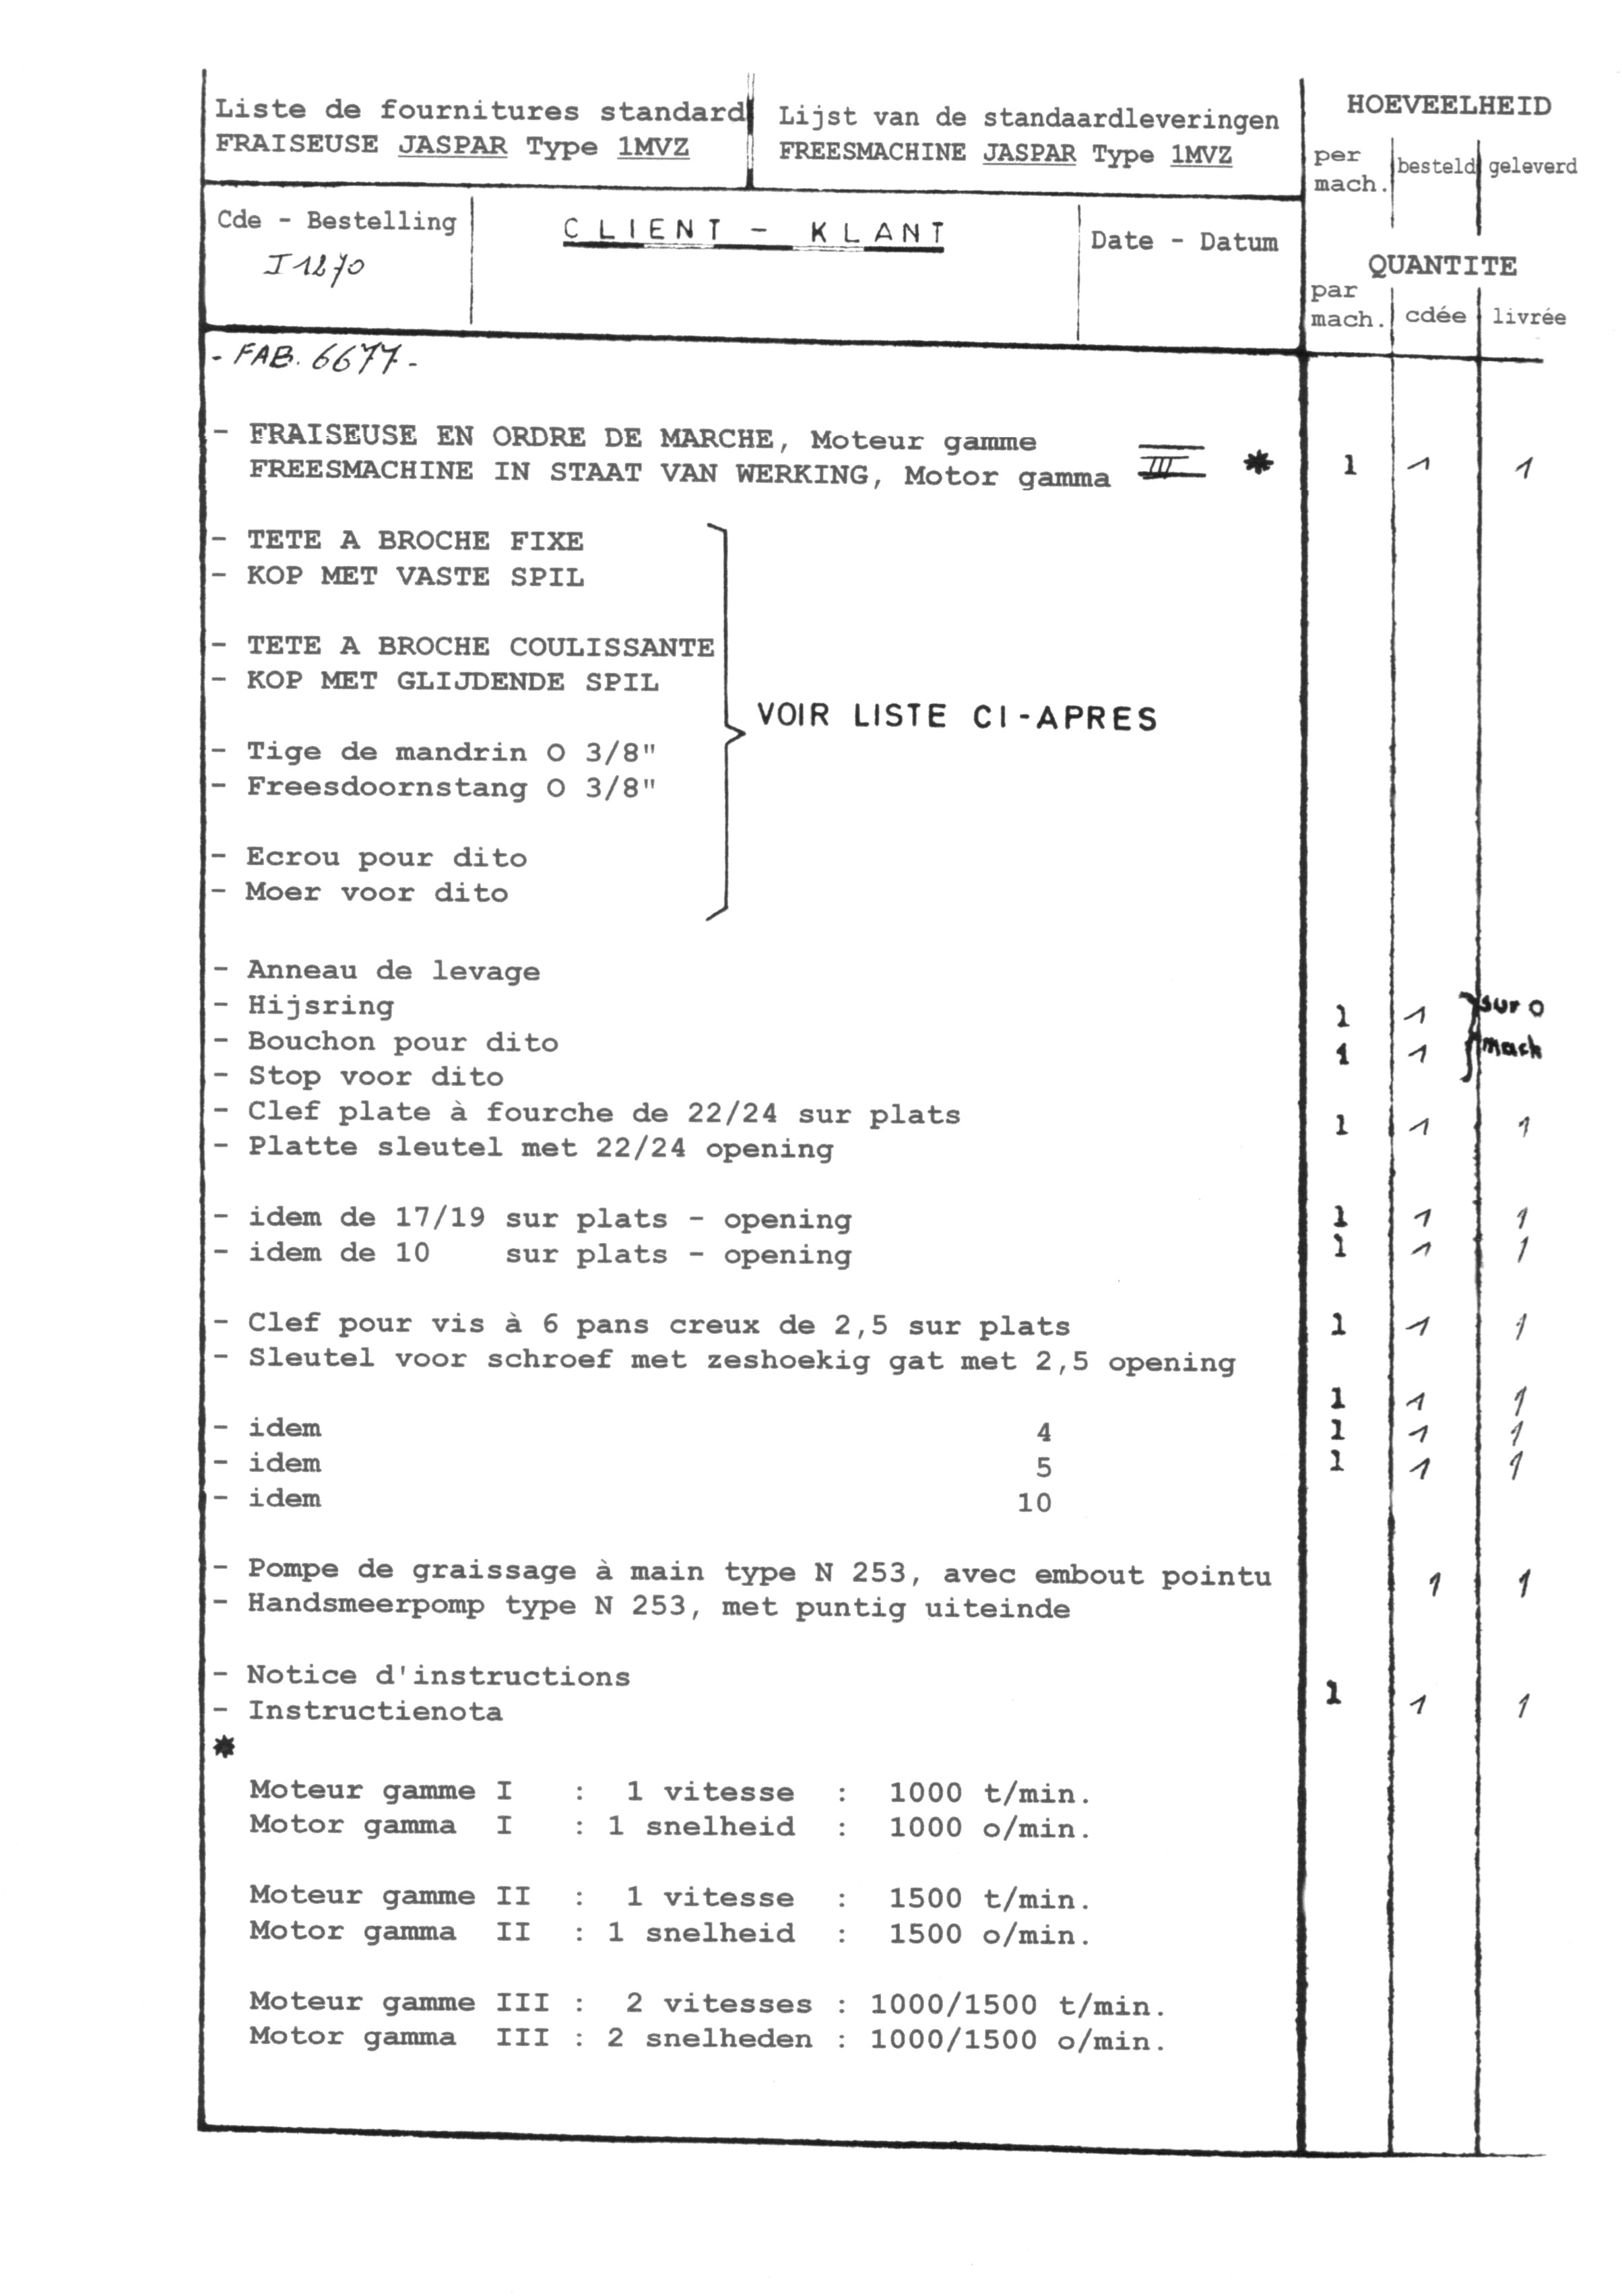 Liste de fournitures standard
FRAISEUSE JASPAR Type 1MVZ
Lijst van de standaardleveringen
FREESMACHINE JASPAR Type 1MVZ
HOEVEELHEID
per mach. besteld geleverd
Cde - Bestelling
I1270
CLIENT - KLANT
Date - Datum
QUANTITE
par mach. cdée livrée
- FAB. 6677 -
- FRAISEUSE EN ORDRE DE MARCHE, Moteur gamme
FREESMACHINE IN STAAT VAN WERKING, Motor gamma III * 1 1 1
- TETE A BROCHE FIXE
- KOP MET VASTE SPIL
- TETE A BROCHE COULISSANTE
- KOP MET GLIJDENDE SPIL
VOIR LISTE CI-APRES
- Tige de mandrin O 3/8"
- Freesdoornstang O 3/8"
- Ecrou pour dito
- Moer voor dito
- Anneau de levage
- Hijsring 1 1 sur
- Bouchon pour dito 1 1 mach
- Stop voor dito
- Clef plate à fourche de 22/24 sur plats 1 1 1
- Platte sleutel met 22/24 opening
- idem de 17/19 sur plats - opening 1 1 1
- idem de 10 sur plats - opening 1 1 1
- Clef pour vis à 6 pans creux de 2,5 sur plats 1 1 1
- Sleutel voor schroef met zeshoekig gat met 2,5 opening
1 1 1
- idem 4 1 1 1
- idem 5 1 1 1
- idem 10
- Pompe de graissage à main type N 253, avec embout pointu 1 1
- Handsmeerpomp type N 253, met puntig uiteinde
- Notice d'instructions 1 1 1
- Instructienota
*
Moteur gamme I : 1 vitesse : 1000 t/min.
Motor gamma I : 1 snelheid : 1000 o/min.
Moteur gamme II : 1 vitesse : 1500 t/min.
Motor gamma II : 1 snelheid : 1500 o/min.
Moteur gamme III : 2 vitesses : 1000/1500 t/min.
Motor gamma III : 2 snelheden : 1000/1500 o/min.